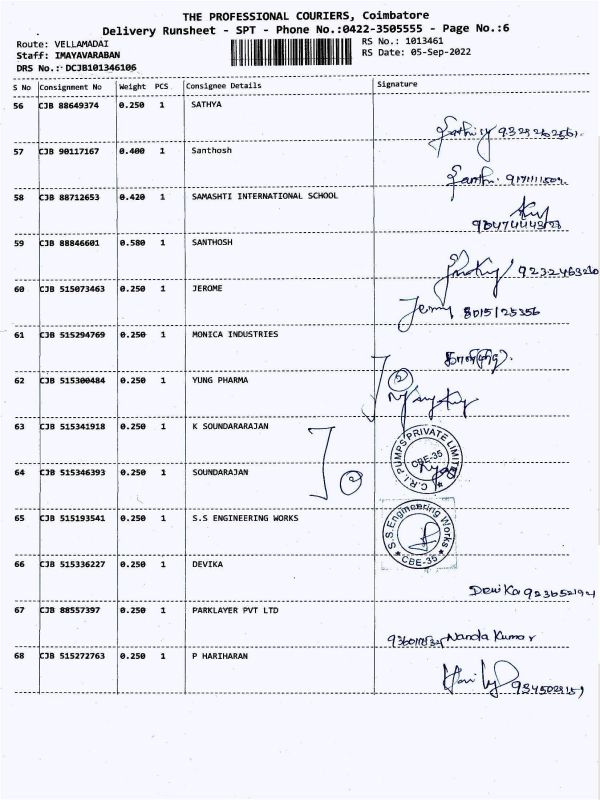 THE PROFESSIONAL COURIERS, Coimbatore
Delivery Runsheet - SPT - Phone No.:0422-3505555 - Page No.:6
Route: VELLAMADAI
RS No.: 1013461
Staff: IMAYAVARABAN
RS Date: 05-Sep-2022
DRS No.: DCJB101346106
S No Consignment No Weight PCS Consignee Details Signature
56 CJB 88649374 0.250 1 SATHYA
57 CJB 90117167 0.400 1 Santhosh
58 CJB 88712653 0.420 1 SAMASHTI INTERNATIONAL SCHOOL
59 CJB 88846601 0.580 1 SANTHOSH
9232463210
60 CJB 515073463 0.250 1 JEROME
Jerry 8015125356
61 CJB 515294769 0.250 1 MONICA INDUSTRIES
62 CJB 515300484 0.250 1 YUNG PHARMA
2
63 CJB 515341918 0.250 1 K SOUNDARARAJAN
C.R.I PUMPS PRIVATE LIMITED
CBE-35
64 CJB 515346393 0.250 1 SOUNDARAJAN
2
65 CJB 515193541 0.250 1 S.S ENGINEERING WORKS
S.S.Engineering Works
CBE-35
66 CJB 515336227 0.250 1 DEVIKA
Devika
67 CJB 88557397 0.250 1 PARKLAYER PVT LTD
Nanda Kumar
68 CJB 515272763 0.250 1 P HARIHARAN